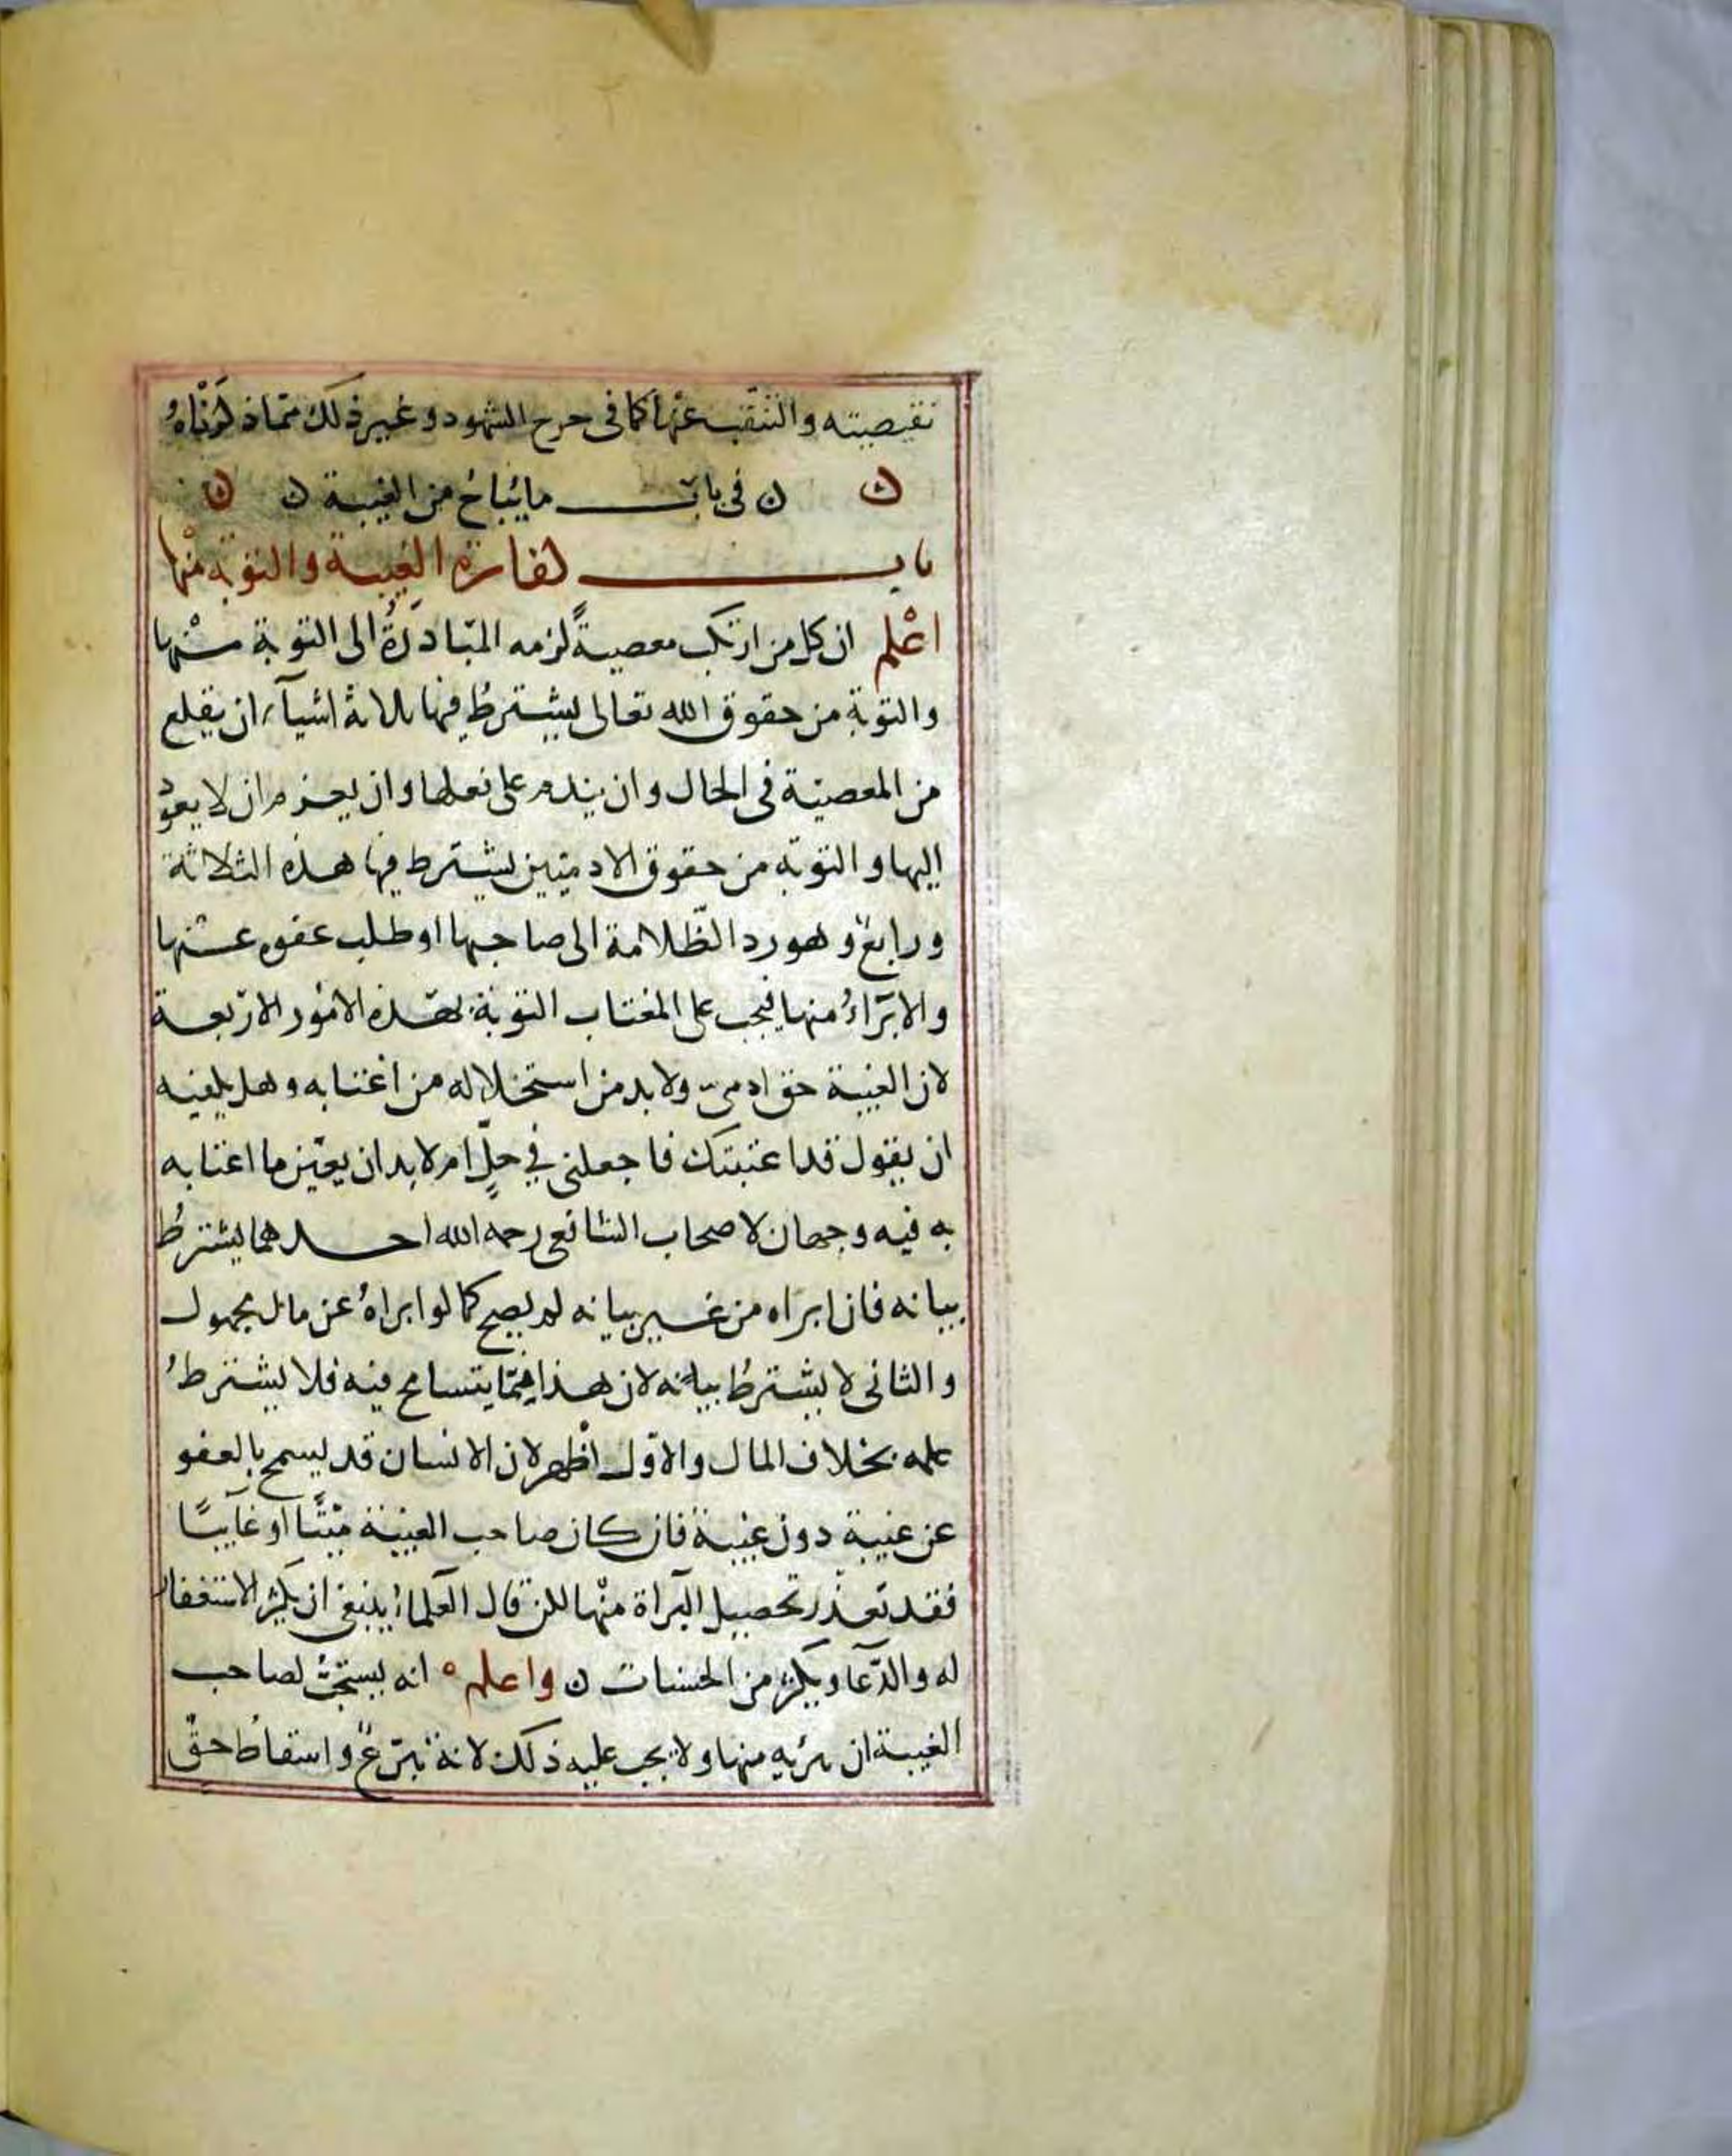 نقيصيته والتنقيب عنها كما في جرح الشهود وغير ذلك مما ذكرناهُ
ن ن في باب ما يُباحُ من الغيبة ن ن
باب كفارة الغيبة والتوبة منْها
اعْلم ان كل من ارتكب معصيةً لزمه المبَادَرَةُ الى التوبة منْها
والتوبة من حقوق الله تعالى يشترطُ فيها ثلاثة اشيآء ان يقلع
من المعصيّة في الحال وان يندم على فعلها وان يعزم ان لا يعودُ
إليها والتوبّه من حقوق الادميّين يشترط فيها هذه الثلاثة
ورابعٌ وهو رد الظّلامة الى صاحبها او طلب عفوه عنْها
والابَراءُ منها فيجب على المغتاب التوبة بهذه الامُور الاربعة
لان الغيبة حق ادمىّ ولا بد من استحلاله من اغتابه وهل يكفيه
ان يقول قد اغتبتك فاجعلني في حلٍّ ام لا بد ان يعيّن ما اغتابه
به فيه وجهان لاصحاب الشافعي رحمه الله احدهما يشترطُ
بيانه فان ابرَاه من غير بيانه لم يصح كما لو ابراهُ عن مال مجهول
والثاني لا يشترطُ بيانه لان هذا ممّا يتسامح فيه فلا يشترطُ
علمه بخلاف المال والاوّل اظهر لان الانسان قد يسمح بالعفو
عن غيبة دون غيبة فان كان صاحب الغيبَة ميّتًا او غآيبًا
فقد تعذّر تحصيل البَراة منْها لكن قال العُلمآءُ ينبغي ان يكثر الاستغفار
له والدّعآ ويكثر من الحسنات ن واعلم ه انه يستحبُّ لصاحب
الغيبة ان يبرّيه منها ولا يجب عليه ذلك لانه تبرّعٌ واسقاطُ حقّ